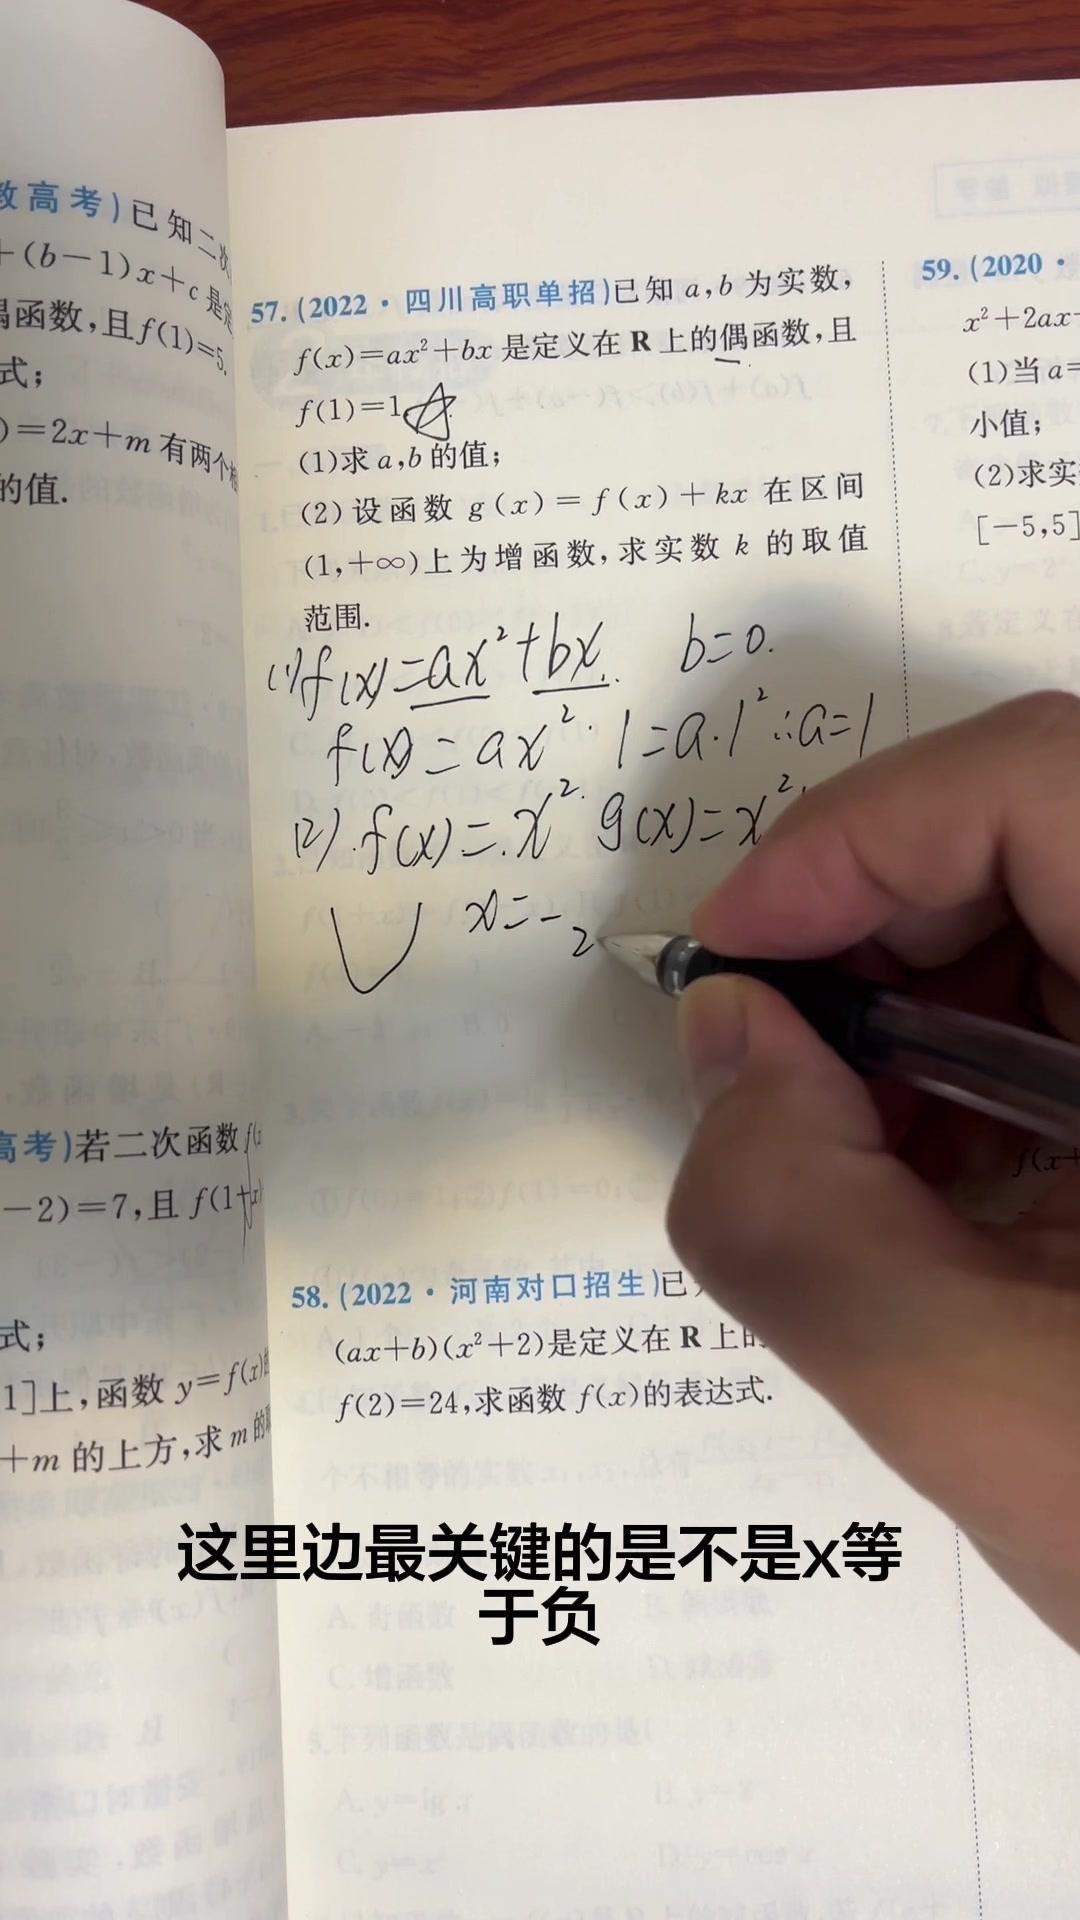 教高考)已知二次
+(b-1)x+c是定
偶函数,且f(1)=5.
式;
)=2x+m有两个相
的值.
高考)若二次函数f(x
-2)=7,且f(1+x)
式;
1]上,函数y=f(x)的
+m的上方,求m的取
57.(2022·四川高职单招)已知a,b为实数,
f(x)=ax²+bx是定义在R上的偶函数,且
f(1)=1
(1)求a,b的值;
(2)设函数g(x)=f(x)+kx在区间
(1,+∞)上为增函数,求实数k的取值
范围.
(1)f(x)=ax²+bx. b=0.
f(x)=ax². 1=a·1² ∴a=1
(2).f(x)=x². g(x)=x²
x=-
2
58.(2022·河南对口招生)已
(ax+b)(x²+2)是定义在R上的
f(2)=24,求函数f(x)的表达式.
59.(2020·
x²+2ax
(1)当a=
小值;
(2)求实
[-5,5]
f(x+
这里边最关键的是不是x等
于负